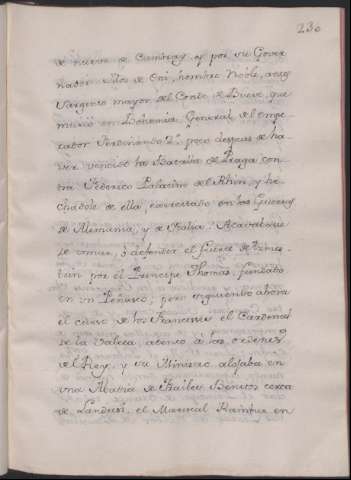 230
de nueve de Cambray y por su Gover
nador Mos de Cri, hombre Noble, as
Sargento mayor del Conde de Bucoi, que
murió en Bohemia General del empe-
rador Ferdinando 2º. poco despues de ha-
ver vencido la Batalla de Praga con
tra Federico Palatino del Rhin, y he-
chadole de ella, exercitado en las Guerras
de Alemania, y de Italia: Acavabase
de venir, ò defender el fuerte de
por el Principe Thomas, fundado
en un Peñasco; pero siguiendo ahora
el curso de los Franceses el Cardenal
de la Valeta, atento à las ordenes
del Rey, y su Ministro, alojaba en
una Abadia de Frailes Benitos cerca
de Landresi, el Mariscal en